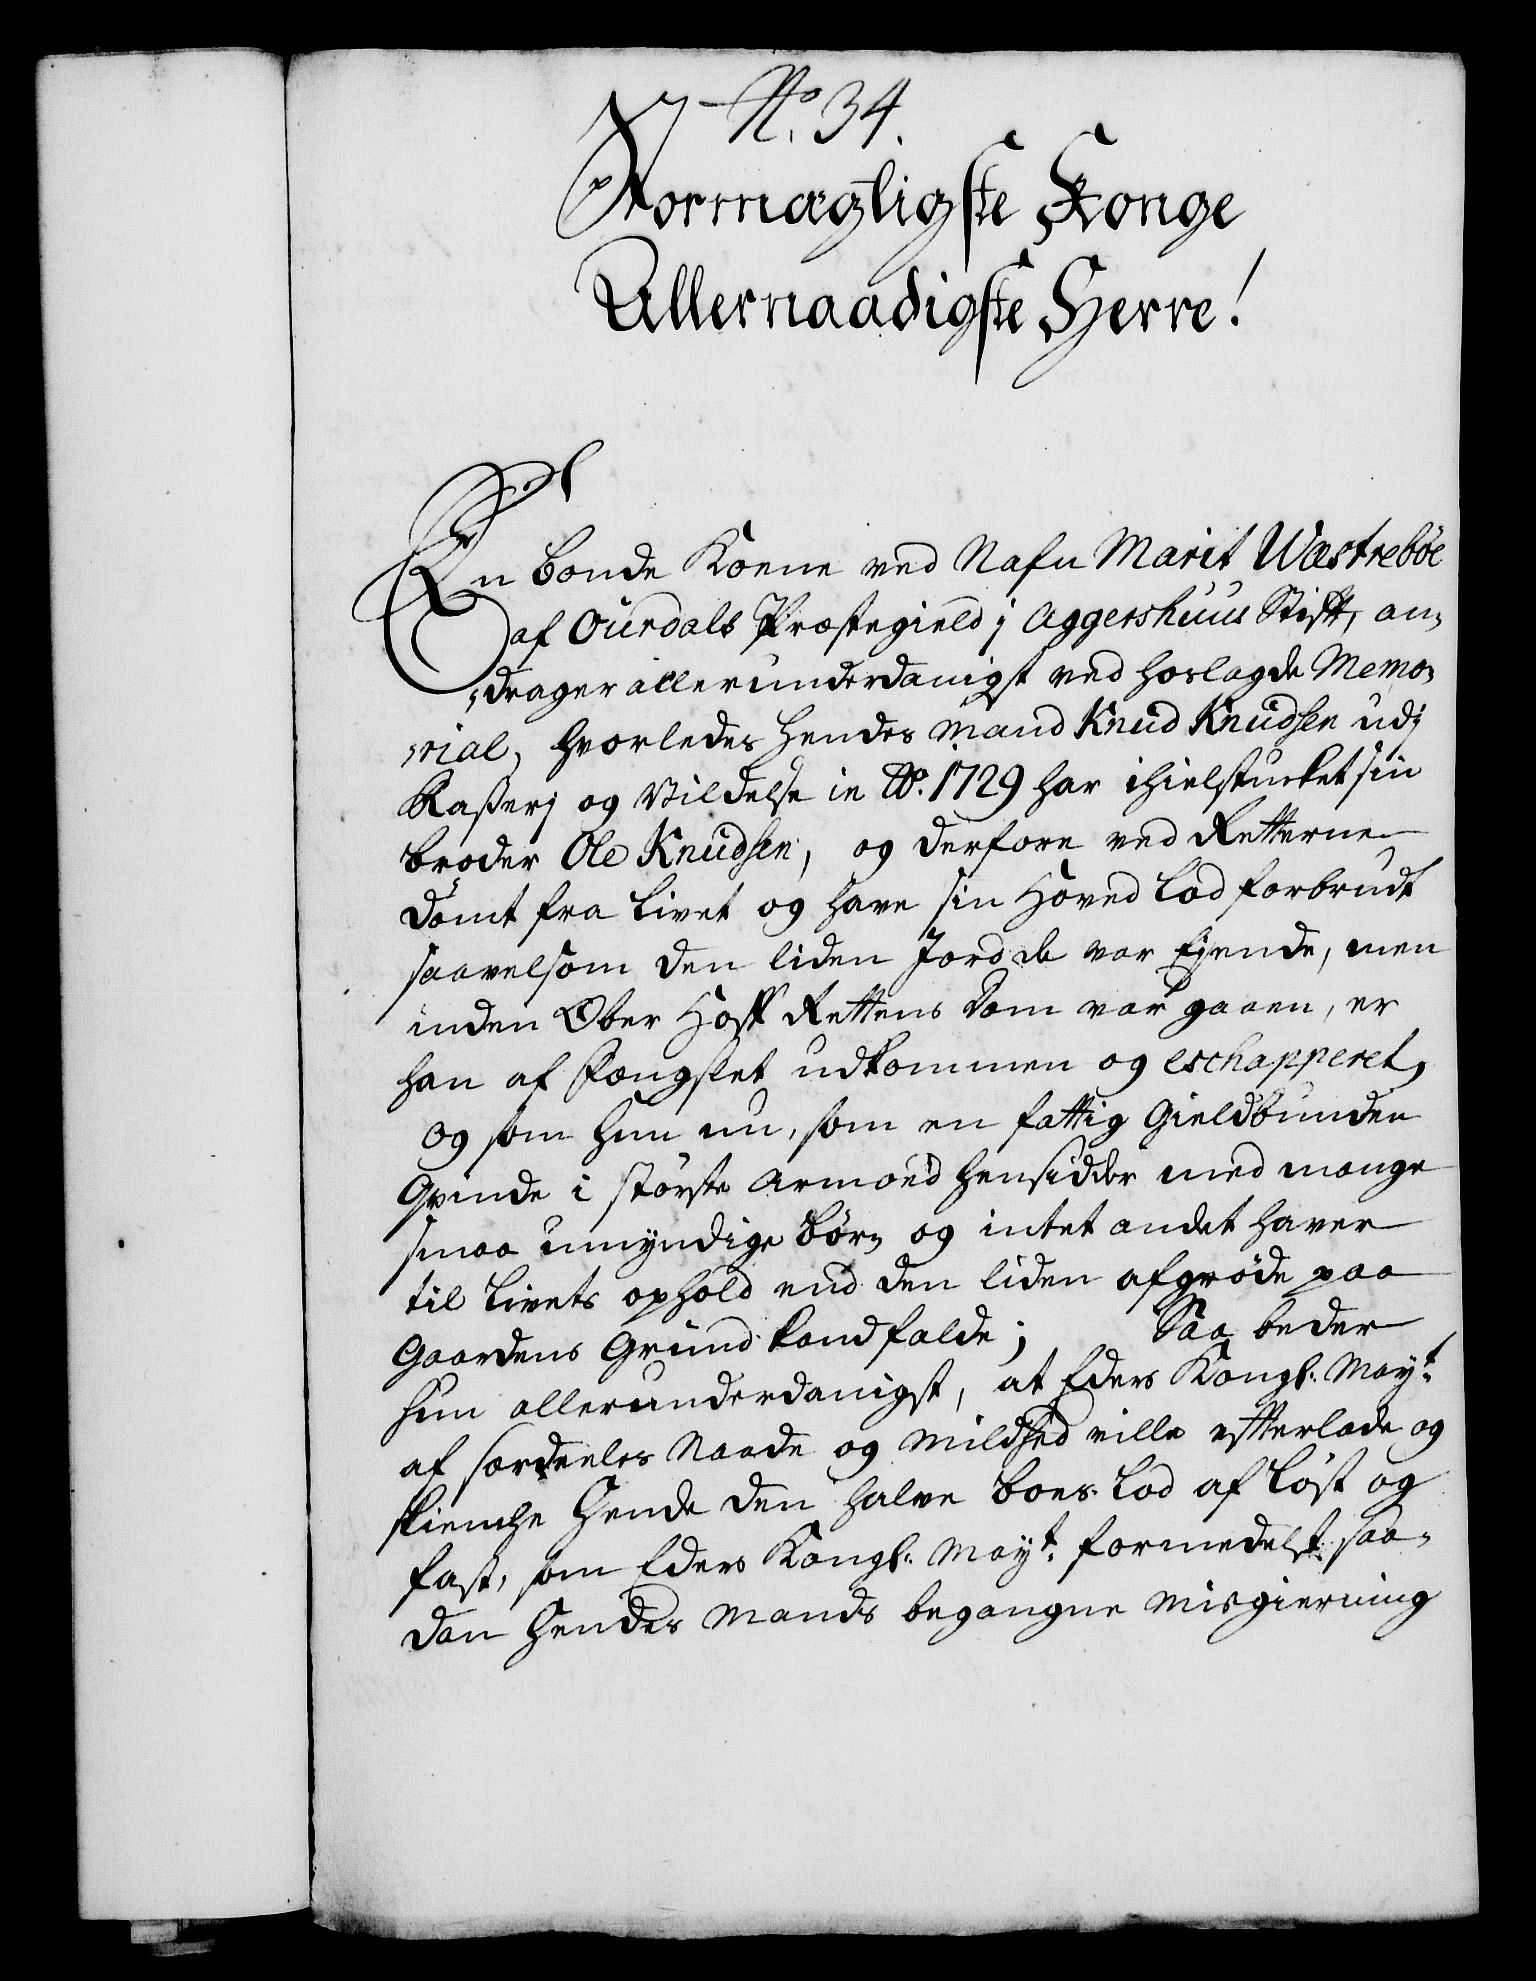 No. 34.
Stormægtigste Konge
Allernaadigste Herre!
En bonde Koene ved Nafn Marit Wæstrebøe
af Ourdals Præstegield j Aggershuus Stift, an-
drager allerunderdanigst ved hoslagde Memo-
rial, hvorledes hendes Mand Knud Knudsen udj
Raßerj og Vildelse in Ao. 1729 har ihielstucket sin
broder Ole Knudsen, og derfore ved Retterne
dömt fra livet og have sin Hoved lod forbrudt
saavelsom den liden Jord de var Ejende, men
inden Ober Hoff Rettens Dom var gaaen, er
han af Fængslet udkommen og eschapperet,
og som hun nu, som en fattig Gieldbunden
Qvinde i störste Armoed hensidder med mange
smaa umyndige börn og intet andet haver
til livets ophold end den liden afgröde paa
Gaardens Grund kand falde; Saa beder
hun allerunderdanigst, at Eders Kongl: Mayt:
af særdeeles Naade og Mildhed ville efterlade og
skienche Hende den halve boes lod af löst og
fast, som Eders Kongl: Mayt: formedelst saa-
dan Hendes Mands begangne Misgierning